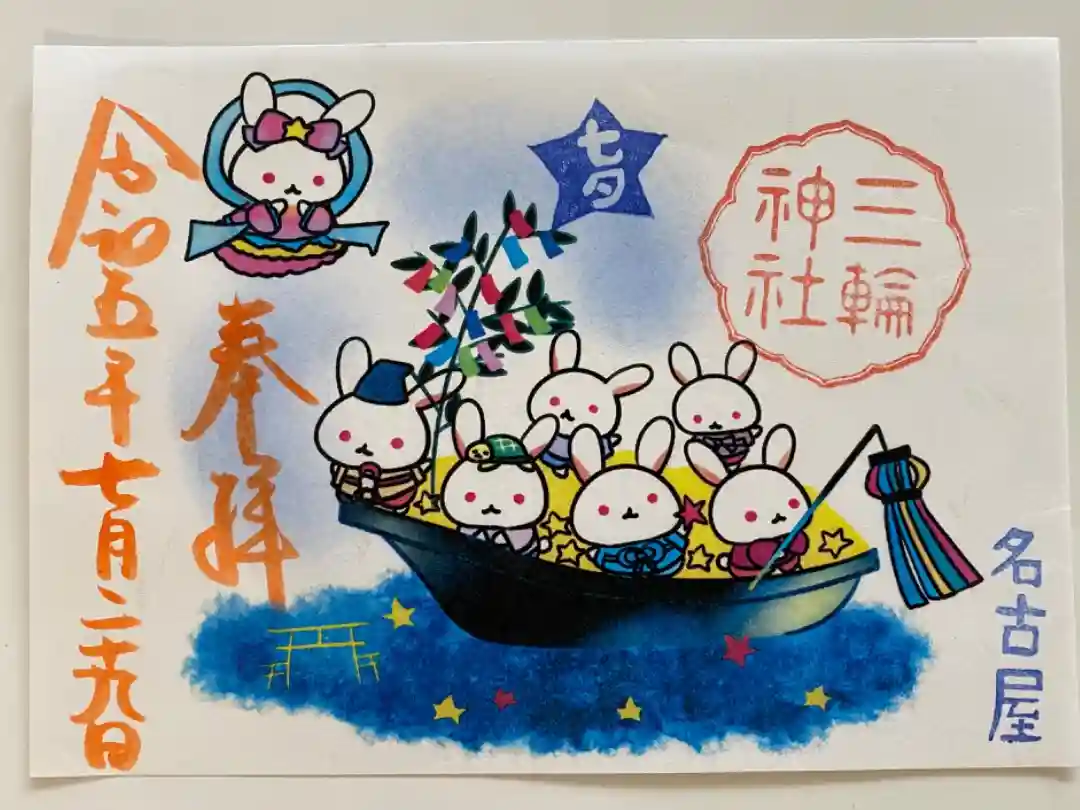 名古屋
三輪
神社
七夕
奉拝
令和五年七月二十九日